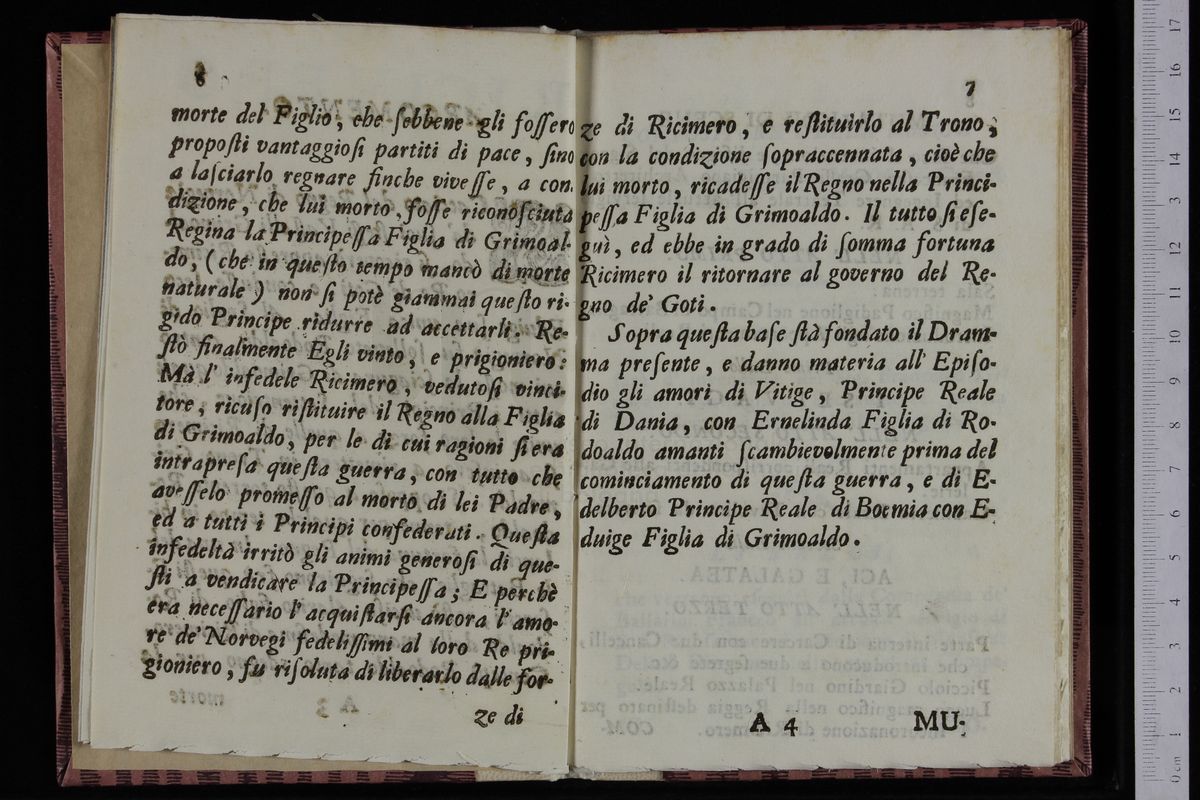 6
morte del Figlio, che ſebbene gli foſſero
propoſti vantaggioſi partiti di pace, ſino
a laſciarlo regnare finche viveſſe, a con.
dizione, che lui morto, foſſe riconoſciuta
Regina la Principeſſa Figlia di Grimoal-
do, (che in queſto tempo mancò di morte
naturale) non ſi potè giammai queſto ri-
gido Principe ridurre ad accettarli. Re-
ſtò finalmente Egli vinto, e prigioniero:
Mà l' infedele Ricimero, vedutoſi vinci-
tore, ricuſo riſtituire il Regno alla Figlia
di Grimoaldo, per le di cui ragioni ſi era
intrapreſa queſta guerra, con tutto che
aveſſelo promeſſo al morto di lei Padre,
ed a tutti i Principi confederati. Queſta
infedeltà irritò gli animi generoſi di que-
ſti a vendicare la Principeſſa; E perchè
era neceſſario l' acquiſtarſi ancora l' amo-
re de' Norvegi fedeliſſimi al loro Re pri-
gioniero, fu riſoluta di liberarlo dalle for-
ze di
7
ze di Ricimero, e reſtituirlo al Trono,
con la condizione ſopraccennata, cioè che
lui morto, ricadeſſe il Regno nella Princi-
peſſa Figlia di Grimoaldo. Il tutto ſi eſe-
guì, ed ebbe in grado di ſomma fortuna
Ricimero il ritornare al governo del Re-
gno de' Goti.
Sopra queſta baſe ſtà fondato il Dram-
ma preſente, e danno materia all' Epiſo-
dio gli amori di Vitige, Principe Reale
di Dania, con Ernelinda Figlia di Ro-
doaldo amanti ſcambievolmente prima del
cominciamento di queſta guerra, e di E-
delberto Principe Reale di Boemia con E-
duige Figlia di Grimoaldo.
A 4 MU-